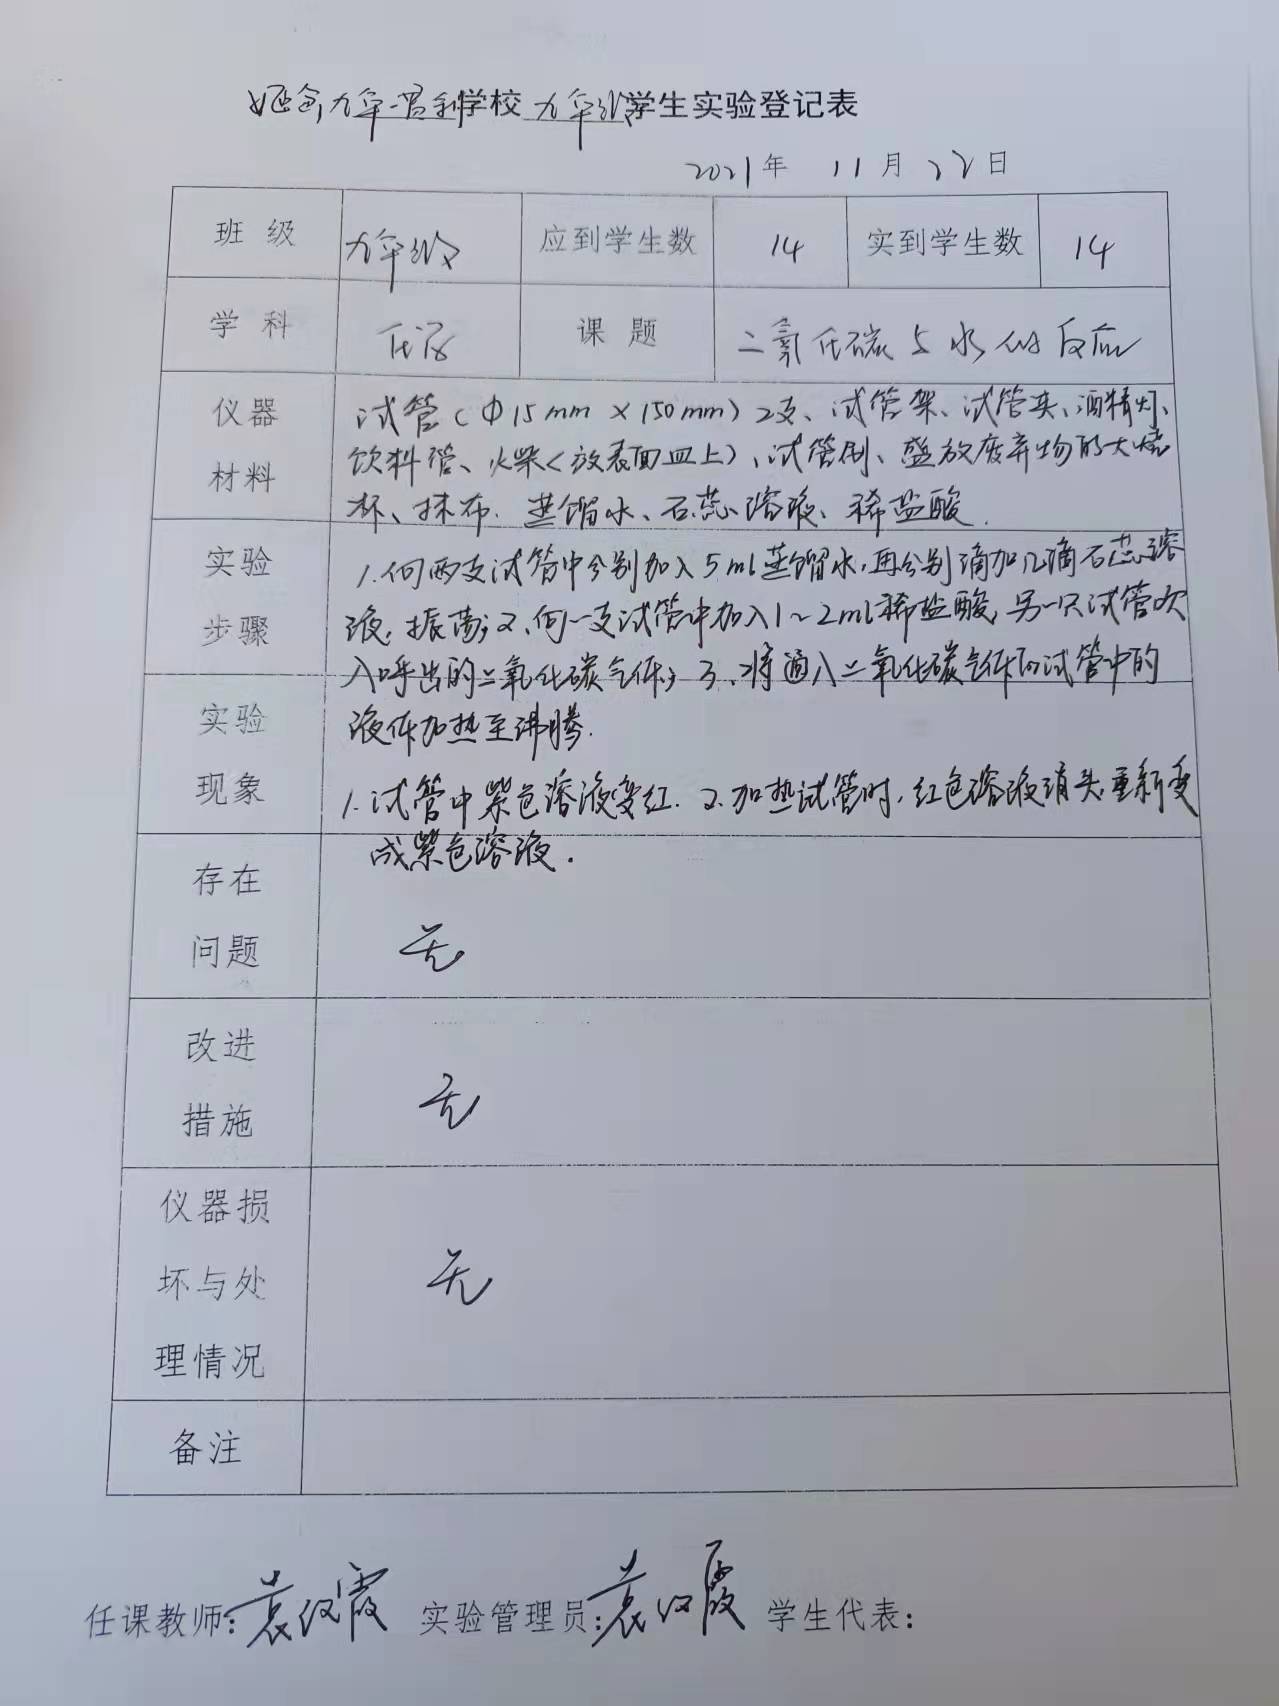 九年一贯制学校 九年级学生实验登记表
2021年 11月 22日
班级 九年级 应到学生数 14 实到学生数 14
学科 化学 课题 二氧化碳与水的反应
仪器
材料
试管(Φ15mm×150mm)2支、试管架、试管夹、酒精灯、
饮料管、火柴<放表面皿上)、试管刷、盛放废弃物的大烧
杯、抹布、蒸馏水、石蕊溶液、稀盐酸.
实验
步骤
1.向两支试管中分别加入5ml蒸馏水,再分别滴加几滴石蕊溶
液,振荡;2、向一支试管中加入1~2ml稀盐酸,另一只试管吹
入呼出的二氧化碳气体;3、将通入二氧化碳气体的试管中的
液体加热至沸腾.
实验
现象
1.试管中紫色溶液变红.2.加热试管时,红色溶液消失重新变
成紫色溶液.
存在
问题
无
改进
措施
无
仪器损
坏与处
理情况
无
备注
任课教师:袁红霞 实验管理员:袁红霞 学生代表: